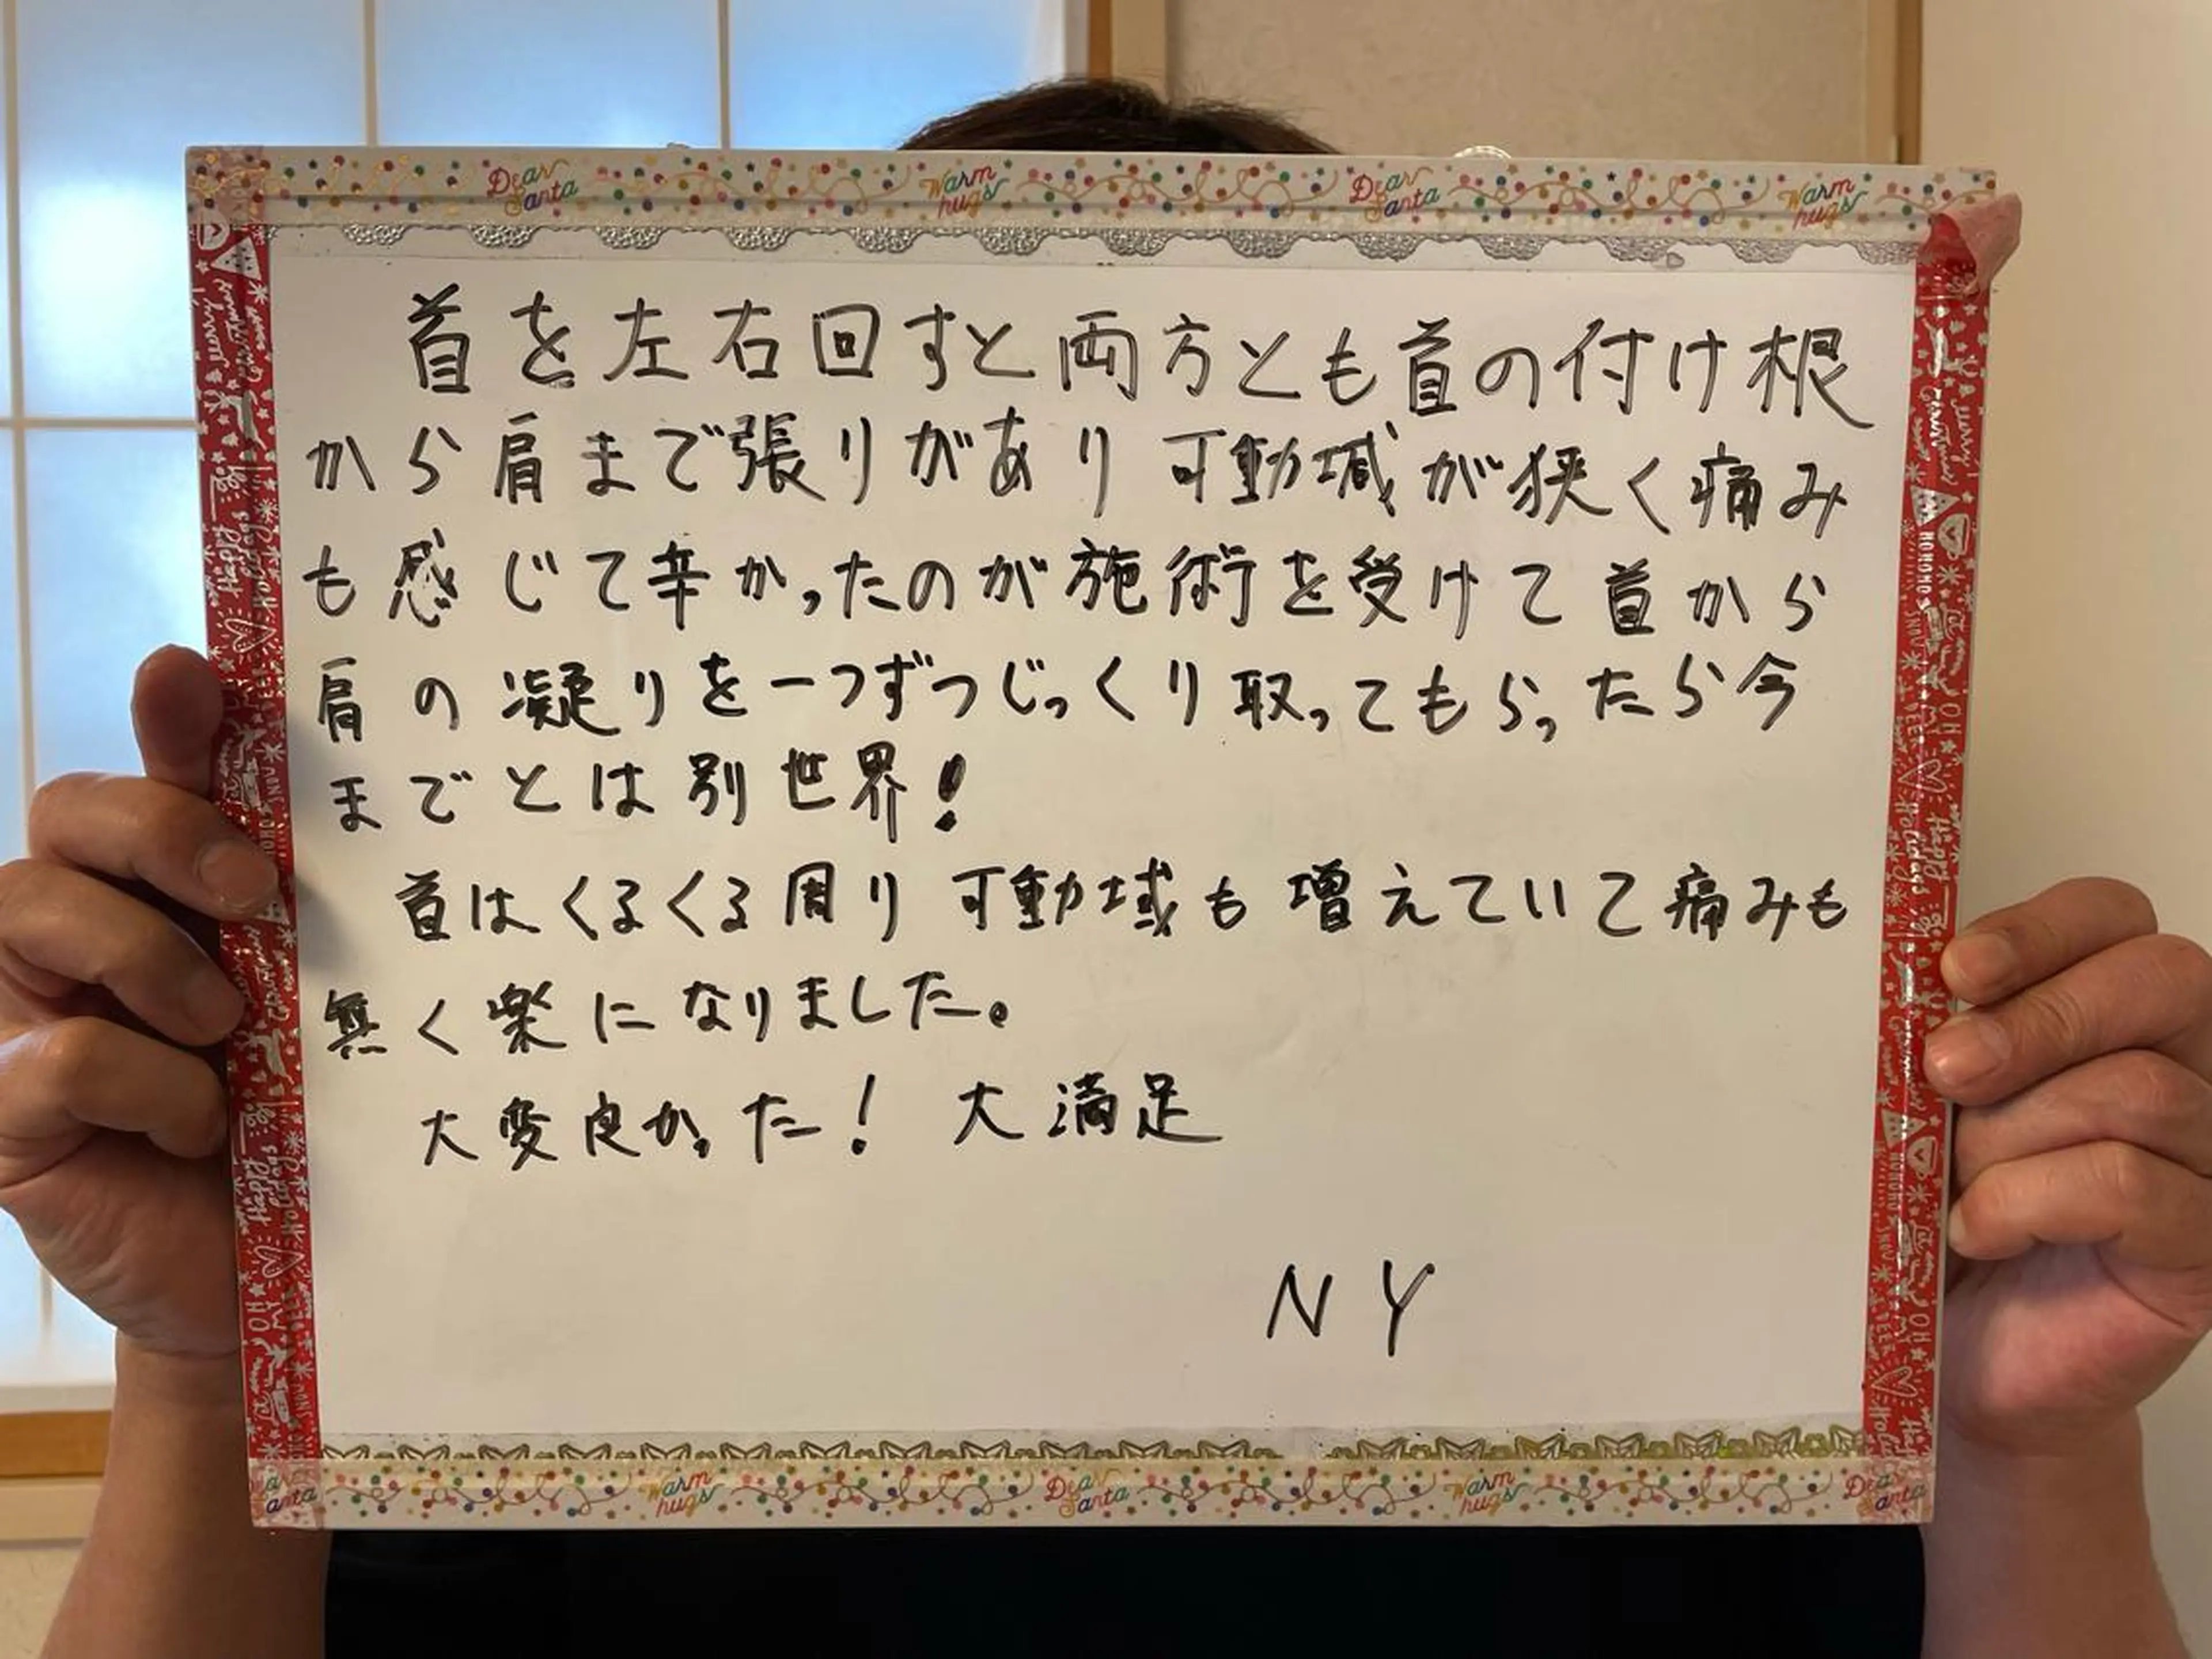 Dear Santa Warm hugs Dear Santa Warm hugs
首を左右回すと両方とも首の付け根
から肩まで張りがあり可動域が狭く痛み
も感じて辛かったのが施術を受けて首から
肩の凝りを一つずつじっくり取ってもらったら今
までとは別世界!
首はくるくる周り可動域も増えていて痛みも
無く楽になりました。
大変良かった! 大満足
NY
Warm hugs Dear Santa Warm hugs Dear Santa